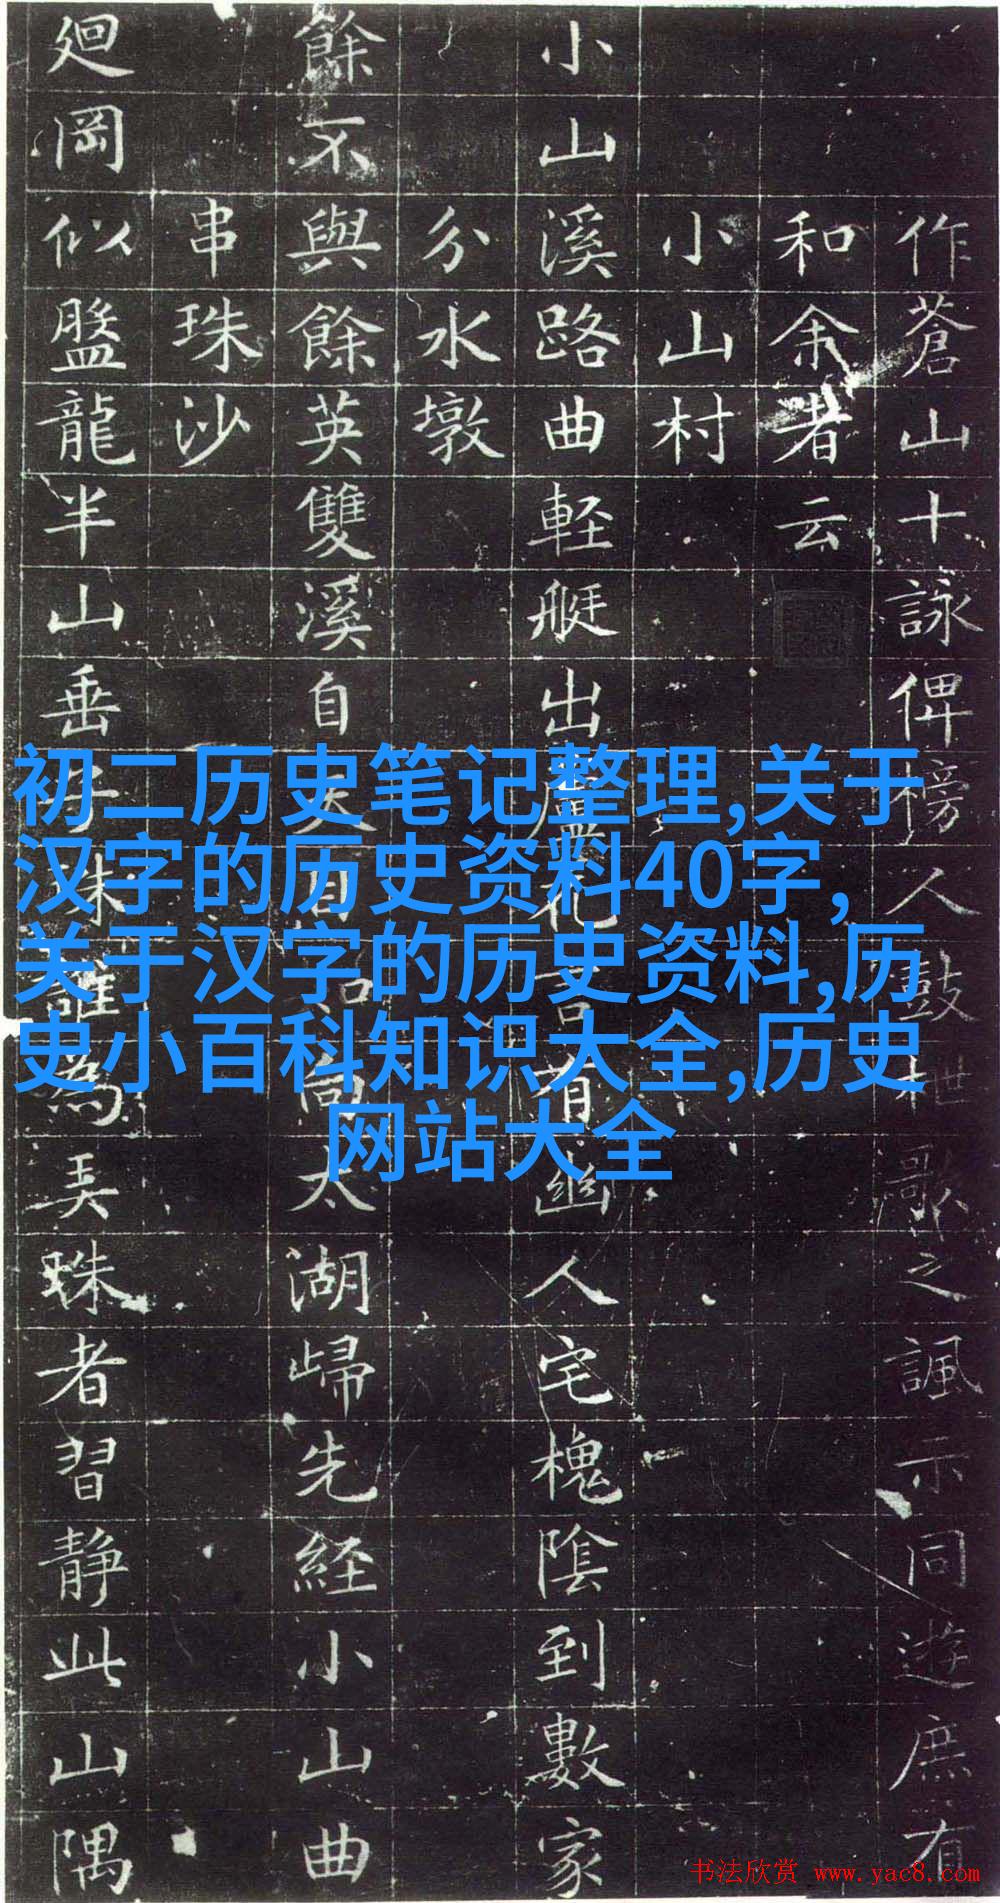 作蒼山十詠俾榜人鼓枻歌之諷示同遊庶有
和余者云
小山村
小山溪路曲軽艇出蘆花言有幽人宅槐陰到數家
分水墩
餘不與餘英雙溪自天目向太湖歸先経小山曲
串珠沙
廻岡似盤龍半山垂珠誰為弄珠者習静此山隅
初二历史笔记整理,关于
汉字的历史资料40字,
关于汉字的历史资料,历
史小百科知识大全,历史
网站大全
书法欣赏 www.yac8.com